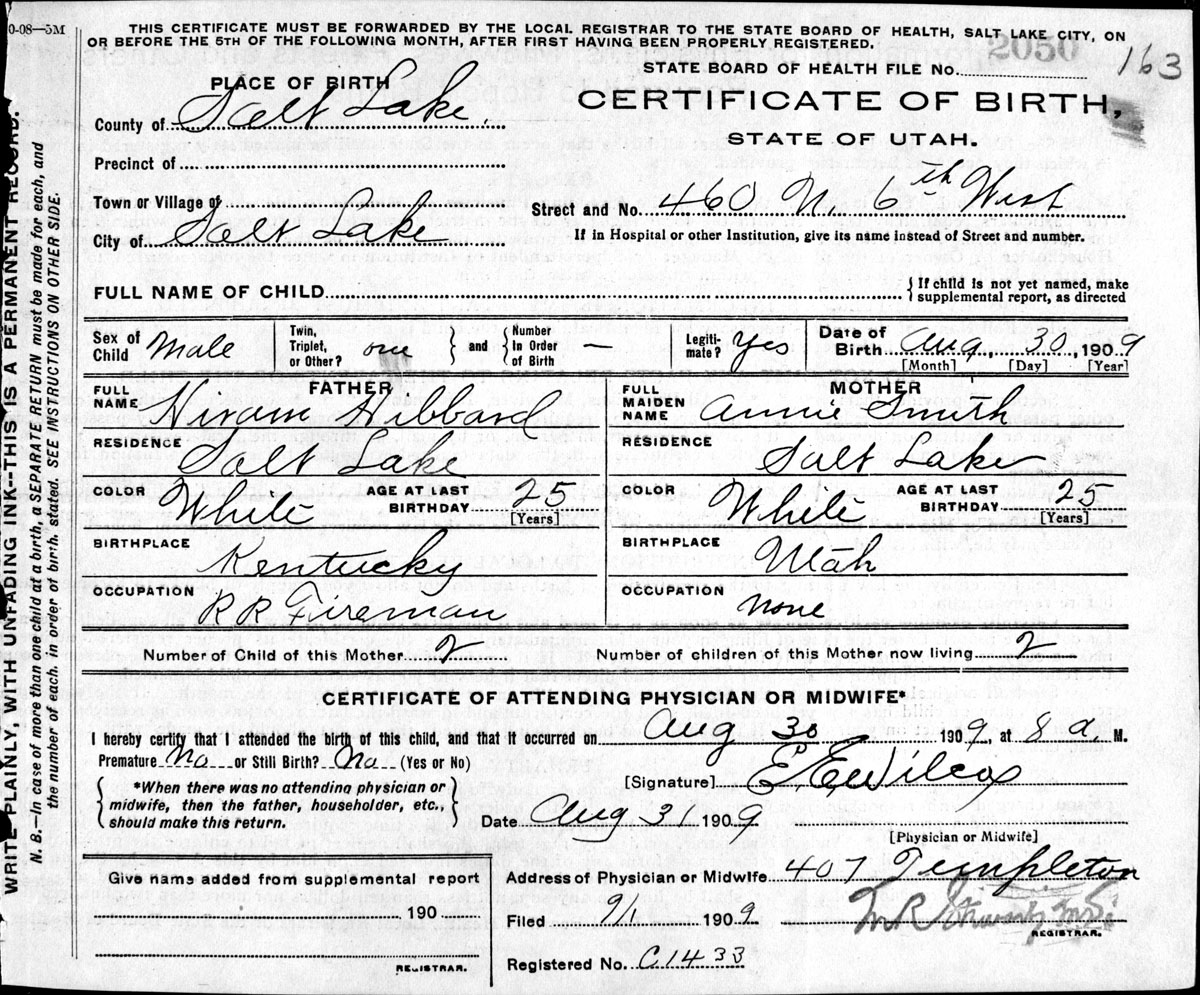 0-08—5M
THIS CERTIFICATE MUST BE FORWARDED BY THE LOCAL REGISTRAR TO THE STATE BOARD OF HEALTH, SALT LAKE CITY, ON
OR BEFORE THE 5TH OF THE FOLLOWING MONTH, AFTER FIRST HAVING BEEN PROPERLY REGISTERED.
2050
163
STATE BOARD OF HEALTH FILE No.
PLACE OF BIRTH
CERTIFICATE OF BIRTH,
STATE OF UTAH.
County of Salt Lake.
Precinct of
Town or Village of
Street and No. 460 N. 6th West
City of Salt Lake
If in Hospital or other Institution, give its name instead of Street and number.
FULL NAME OF CHILD
{ If child is not yet named, make
supplemental report, as directed
Sex of Child Male
Twin, Triplet, or Other? one } and { Number In Order of Birth —
Legiti-mate? Yes
Date of Birth Aug. 30, 1909
[Month] [Day] [Year]
FATHER
FULL NAME Hiram Hibbard
MOTHER
FULL MAIDEN NAME Annie Smith
RESIDENCE Salt Lake
RESIDENCE Salt Lake
COLOR White AGE AT LAST BIRTHDAY 25 [Years]
COLOR White AGE AT LAST BIRTHDAY 25 [Years]
BIRTHPLACE Kentucky
BIRTHPLACE Utah
OCCUPATION R R Fireman
OCCUPATION none
Number of Child of this Mother 2 Number of children of this Mother now living 2
CERTIFICATE OF ATTENDING PHYSICIAN OR MIDWIFE*
I hereby certify that I attended the birth of this child, and that it occurred on Aug 30 1909, at 8 a. M.
Premature No or Still Birth? No (Yes or No)
[Signature] E. E. Wilcox
{ *When there was no attending physician or
midwife, then the father, householder, etc.,
should make this return. }
Date Aug 31 1909
[Physician or Midwife]
Give name added from supplemental report
190
REGISTRAR.
Address of Physician or Midwife 407 Templeton
Filed 9/1 1909
REGISTRAR.
Registered No. C1433
WRITE PLAINLY WITH UNFADING INK--THIS IS A PERMANENT RECORD.
N. B.—In case of more than one child at a birth, a SEPARATE RETURN must be made for each, and
the number of each, in order of birth, stated. SEE INSTRUCTIONS ON OTHER SIDE.